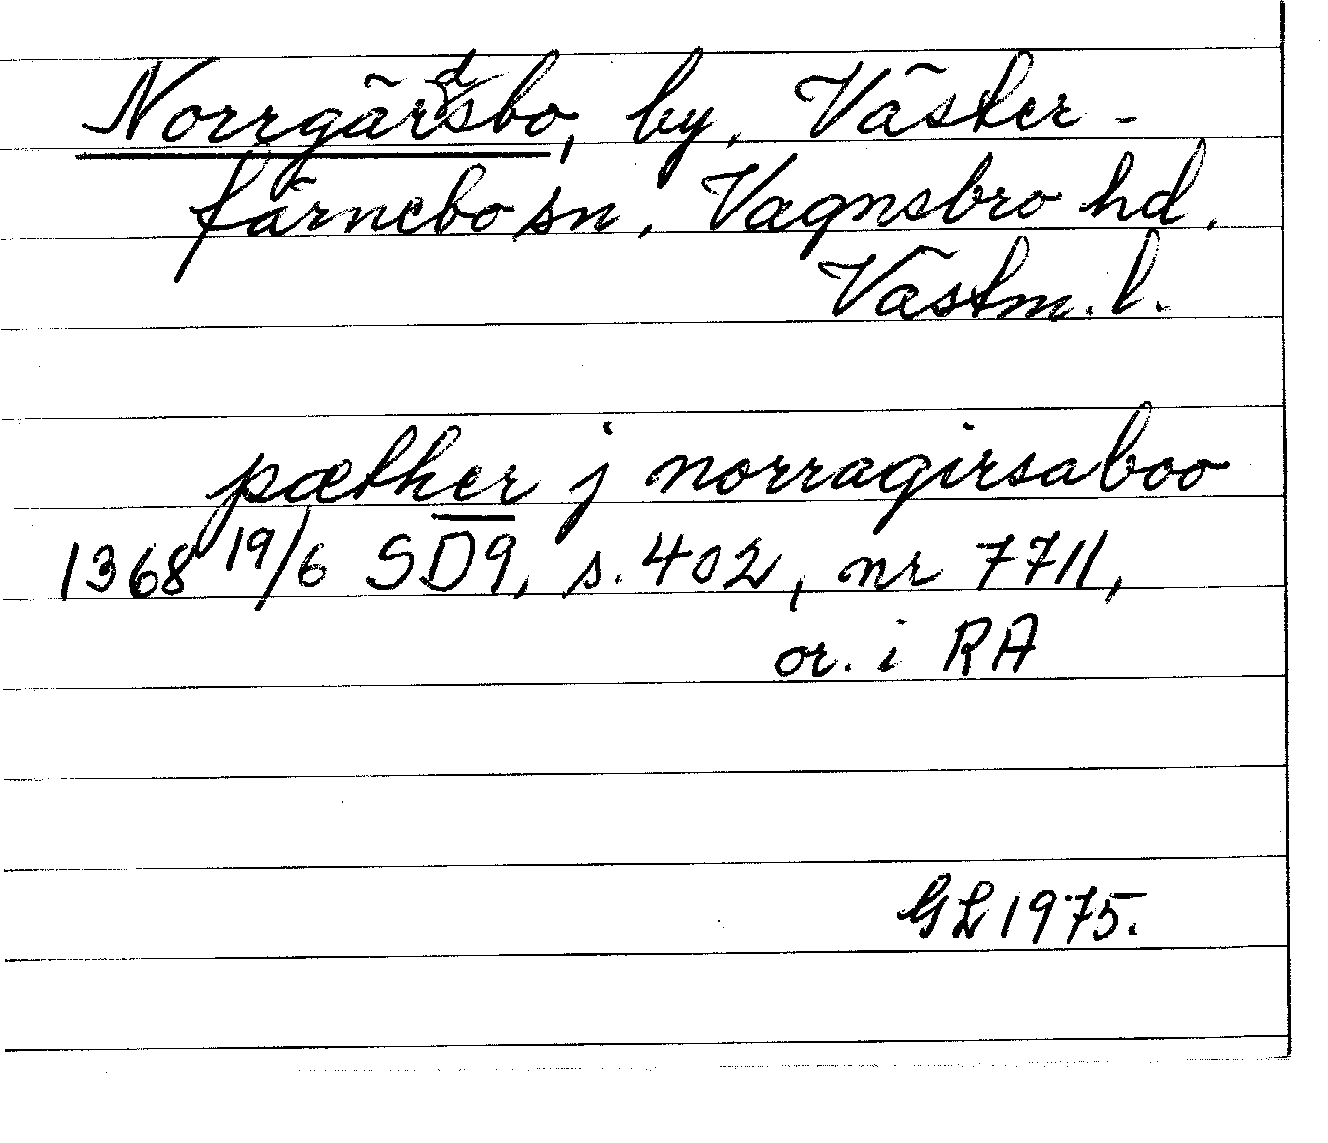 Norrgärdsbo, by, Väster-
färnebo sn, Vagnsbro hd,
Västm. l.
pæther j norragirsaboo
1368 19/6 SD9, s. 402, nr 7711,
or. i RA
GL 1975.